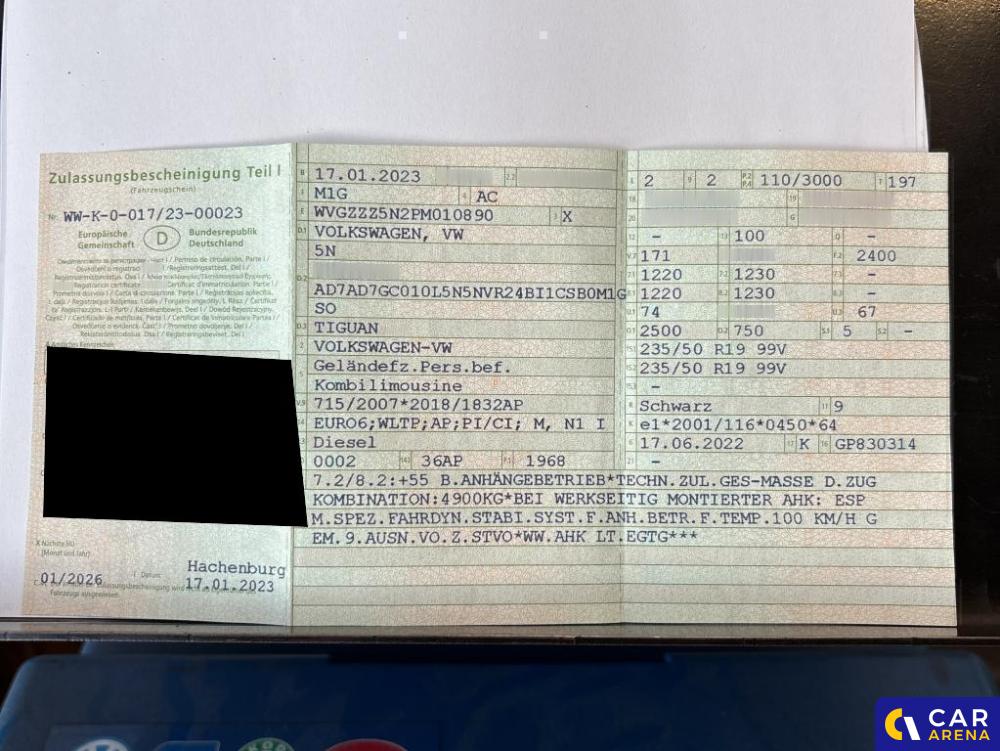 Zulassungsbescheinigung Teil I
(Fahrzeugschein)
Nr. WW-K-0-017/23-00023
Europäische Gemeinschaft
D
Bundesrepublik Deutschland
X Nächste HU
(Monat und Jahr)
01/2026
I Datum:
Hachenburg
17.01.2023
B 17.01.2023 2.2
J M1G 4 AC
E WVGZZZ5N2PM010890 3 X
D.1 VOLKSWAGEN, VW
5N
D.2
AD7AD7GC010L5N5NVR24BI1CSB0M1G
SO
D.3 TIGUAN
2 VOLKSWAGEN-VW
5 Geländefz.Pers.bef.
Kombilimousine
V.9 715/2007*2018/1832AP
14 EURO6;WLTP;AP;PI/CI; M, N1 I
Diesel
0002 14.1 36AP P.1 1968
L 2 9 2 P.2 P.4 110/3000 T 197
18 19
20 G
12 - 13 100 Q -
V.7 171 F.2 2400
7.1 1220 1230 7.3 -
8.1 1220 8.2 1230 8.3 -
U.1 74 U.3 67
O.1 2500 O.2 750 S.1 5 S.2 -
15.1 235/50 R19 99V
15.2 235/50 R19 99V
15.3 -
R Schwarz 11 9
K e1*2001/116*0450*64
6 17.06.2022 17 K 16 GP830314
21 -
7.2/8.2:+55 B.ANHÄNGEBETRIEB*TECHN.ZUL.GES-MASSE D.ZUG
KOMBINATION:4900KG*BEI WERKSEITIG MONTIERTER AHK: ESP
M.SPEZ.FAHRDYN.STABI.SYST.F.ANH.BETR.F.TEMP.100 KM/H G
EM.9.AUSN.VO.Z.STVO*WW.AHK LT.EGTG***
CAR
ARENA